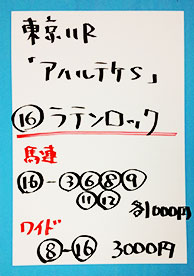 東京11R
「アハルテケS」
⑯ラテンロック
馬連
⑯-③⑥⑧⑨
⑪⑫
各1000円
ワイド
⑧-⑯ 3000円